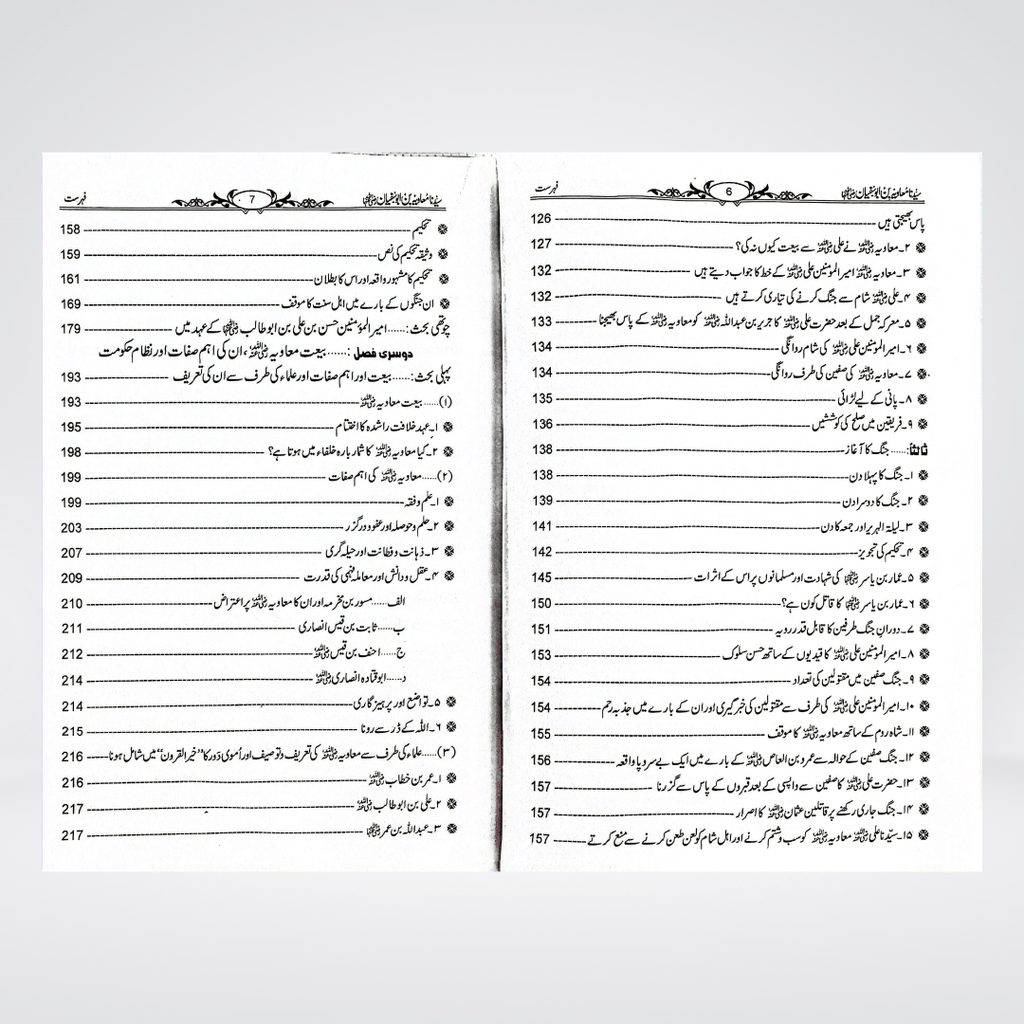 سیدنا معاویہ بن ابوسفیان رضی اللہ عنہما 6 فہرست
پاس بھیجتی ہیں 126
۲۔ معاویہ رضی اللہ عنہ نے علی رضی اللہ عنہ سے بیعت کیوں نہ کی؟ 127
۳۔ معاویہ رضی اللہ عنہ امیر المومنین علی رضی اللہ عنہ کے خط کا جواب دیتے ہیں 132
۴۔ علی رضی اللہ عنہ شام سے جنگ کرنے کی تیاری کرتے ہیں 132
۵۔ معرکہ جمل کے بعد حضرت علی رضی اللہ عنہ کا جریر بن عبداللہ رضی اللہ عنہ کو معاویہ رضی اللہ عنہ کے پاس بھیجنا 133
۶۔ امیر المومنین علی رضی اللہ عنہ کی شام روانگی 134
۷۔ معاویہ رضی اللہ عنہ کی صفین کی طرف روانگی 134
۸۔ پانی کے لیے لڑائی 135
۹۔ فریقین میں صلح کی کوششیں 136
ثالثاً:...... جنگ کا آغاز 138
۱۔ جنگ کا پہلا دن 138
۲۔ جنگ کا دوسرا دن 139
۳۔ لیلۃ الہریر اور جمعہ کا دن 141
۴۔ تحکیم کی تجویز 142
۵۔ عمار بن یاسر رضی اللہ عنہما کی شہادت اور مسلمانوں پر اس کے اثرات 145
۶۔ عمار بن یاسر رضی اللہ عنہما کا قاتل کون ہے؟ 150
۷۔ دوران جنگ طرفین کا قابل قدر رویہ 151
۸۔ امیر المومنین علی رضی اللہ عنہ کا قیدیوں کے ساتھ حسن سلوک 153
۹۔ جنگ صفین میں مقتولین کی تعداد 154
۱۰۔ امیر المومنین علی رضی اللہ عنہ کی طرف سے مقتولین کی خبر گیری اور ان کے بارے میں جذبہ رحم 154
۱۱۔ شاہ روم کے ساتھ معاویہ رضی اللہ عنہ کا موقف 155
۱۲۔ جنگ صفین کے حوالہ سے عمرو بن العاص رضی اللہ عنہ کے بارے میں ایک بے سروپا واقعہ 156
۱۳۔ حضرت علی رضی اللہ عنہ کا صفین سے واپسی کے بعد قبروں کے پاس سے گزرنا 157
۱۴۔ جنگ جاری رکھنے پر قاتلین عثمان رضی اللہ عنہ کا اصرار 157
۱۵۔ سیّدنا علی رضی اللہ عنہ معاویہ رضی اللہ عنہ کو سب وشتم کرنے اور اہل شام کو لعن طعن کرنے سے منع کرتے 157
سیدنا معاویہ بن ابوسفیان رضی اللہ عنہما 7 فہرست
تحکیم 158
وثیقہ تحکیم کی نص 159
تحکیم کا مشہور واقعہ اور اس کا بطلان 161
ان جنگوں کے بارے میں اہل سنت کا موقف 169
چوتھی بحث:...... امیر المؤمنین حسن بن علی بن ابوطالب رضی اللہ عنہما کے عہد میں 179
دوسری فصل:...... بیعت معاویہ رضی اللہ عنہ، ان کی اہم صفات اور نظام حکومت
پہلی بحث:...... بیعت اور اہم صفات اور علماء کی طرف سے ان کی تعریف 193
(۱)...... بیعت معاویہ رضی اللہ عنہ 193
۱۔ عہد خلافت راشدہ کا اختتام 195
۲۔ کیا معاویہ رضی اللہ عنہ کا شمار بارہ خلفاء میں ہوتا ہے؟ 198
(۲)...... معاویہ رضی اللہ عنہ کی اہم صفات 199
۱۔ علم وفقہ 199
۲۔ حلم وحوصلہ اور عفو ودرگزر 203
۳۔ ذہانت وفطانت اور حیلہ گری 207
۴۔ عقل ودانش اور معاملہ فہمی کی قدرت 209
الف...... مسور بن مخرمہ اور ان کا معاویہ رضی اللہ عنہ پر اعتراض 210
ب...... ثابت بن قیس انصاری 211
ج...... احنف بن قیس رضی اللہ عنہ 212
د...... ابوقتادہ انصاری رضی اللہ عنہ 214
۵۔ تواضع اور پرہیزگاری 214
۶۔ اللہ کے ڈر سے رونا 215
(۳)...... علماء کی طرف سے معاویہ رضی اللہ عنہ کی تعریف وتوصیف اور اُموی دَور کا ”خیر القرون“ میں شامل ہونا 216
۱۔ عمر بن خطاب رضی اللہ عنہ 216
۲۔ علی بن ابوطالب رضی اللہ عنہ 217
۳۔ عبداللہ بن عمر رضی اللہ عنہما 217